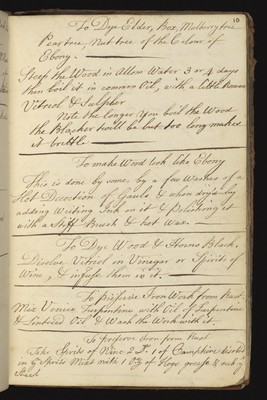 10
To Dye Elder, Box, Mulberry tree
Pear tree, Nut tree of the Colour of
Ebony.
Steep the Wood in Allom Water 3 or 4 days
then boil it in common Oil, with a little Roman
Vitriol & Sulpher
Note the longer you boil the Wood
the Blacker twill be but too long makes
it brittle
To make Wood look like Ebony
This is done by some, by a few Washes of a
Hot Decoction of Gauls, & when dry
adding Writing Ink on it & Polishing it
with a Stiff Brush & hot Wax.
To Dye Wood & Horns Black,
Disolve Vitriol in Vinegar or Spirits of
Wine, & infuse them in it.
To preserve Iron Work from Rust.
Mix Venice Turpentine with Oil of Turpentine
& Linseed Oil & Wash the Work with it.
To preserve Iron from Rust
Take Spirits of Wine 2 1 of Camphire
in Spirits Mix with 1 of Hogs grease & rub
Steel